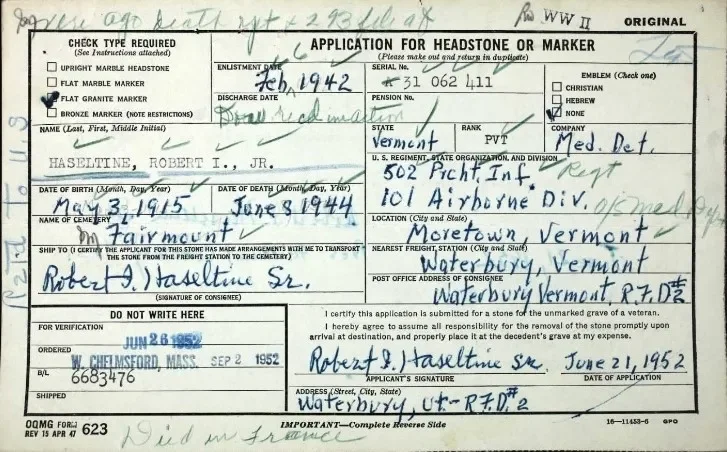 WW II
ORIGINAL
CHECK TYPE REQUIRED
(See Instructions attached)
UPRIGHT MARBLE HEADSTONE
FLAT MARBLE MARKER
FLAT GRANITE MARKER
BRONZE MARKER (NOTE RESTRICTIONS)
APPLICATION FOR HEADSTONE OR MARKER
(Please make out and return in duplicate)
ENLISTMENT DATE
Feb 1942
SERIAL No.
31 062 411
EMBLEM (Check one)
CHRISTIAN
HEBREW
NONE
DISCHARGE DATE
PENSION No.
NAME (Last, First, Middle Initial)
HASELTINE, ROBERT I., JR.
STATE
Vermont
RANK
PVT
COMPANY
Med. Det.
U. S. REGIMENT, STATE ORGANIZATION, AND DIVISION
502 Prcht. Inf. Regt
101 Airborne Div.
DATE OF BIRTH (Month, Day, Year)
May 3, 1915
DATE OF DEATH (Month, Day, Year)
June 8 1944
NAME OF CEMETERY
Fairmount
LOCATION (City and State)
Moretown, Vermont
SHIP TO (I CERTIFY THE APPLICANT FOR THIS STONE HAS MADE ARRANGEMENTS WITH ME TO TRANSPORT THE STONE FROM THE FREIGHT STATION TO THE CEMETERY)
Robert I. Haseltine Sr.
(SIGNATURE OF CONSIGNEE)
NEAREST FREIGHT STATION (City and State)
Waterbury, Vermont
POST OFFICE ADDRESS OF CONSIGNEE
Waterbury Vermont, R.F.D #2
DO NOT WRITE HERE
FOR VERIFICATION
JUN 26 1952
ORDERED
W. CHELMSFORD, MASS. SEP 2 1952
B/L
6683476
SHIPPED
I certify this application is submitted for a stone for the unmarked grave of a veteran.
I hereby agree to assume all responsibility for the removal of the stone promptly upon
arrival at destination, and properly place it at the decedent's grave at my expense.
Robert I. Haseltine Sr. June 21, 1952
APPLICANT'S SIGNATURE
DATE OF APPLICATION
ADDRESS (Street, City, State)
Waterbury, Vt- R.F.D. #2
OQMG FORM
REV 15 APR 47 623
IMPORTANT—Complete Reverse Side
16—11453-6 GPO
Died in France
Ret'd To U.S